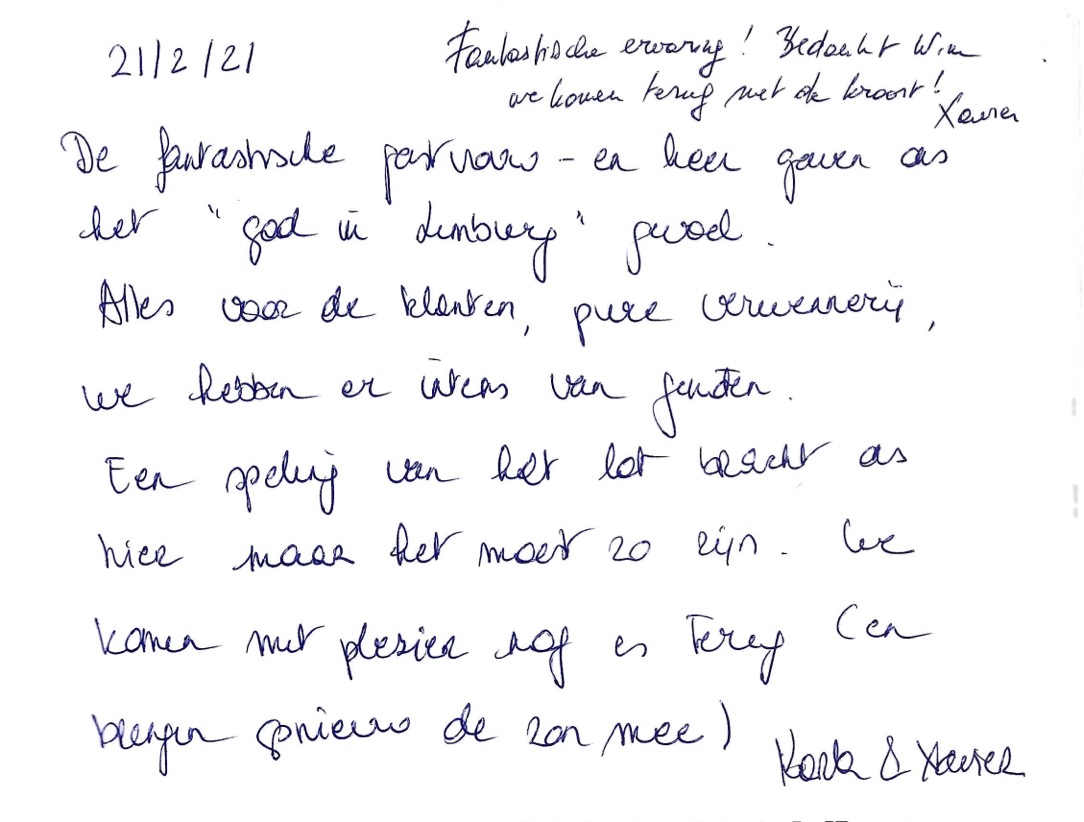 21/2/21
Fantastische ervaring! Bedankt Wim
we komen terug met de kroost!
Xavier
De fantastische gastvrouw - en heer gaven ons
het "god in Limburg" gevoel.
Alles voor de klanten, pure verwennerij,
we hebben er intens van genoten.
Een speling van het lot bracht ons
hier maar het moest zo zijn. We
komen met plezier nog es terug (en
brengen opnieuw de zon mee)
Karla & Xavier